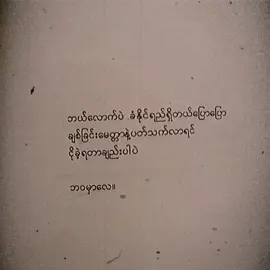 ဘယ်လောက်ပဲ ခံနိုင်ရည်ရှိတယ်ပြောပြော
ချစ်ခြင်းမေတ္တာနဲ့ပတ်သက်လာရင်
ငိုခဲ့ရတာချည်းပါပဲ
ဘဝမှာလေ။